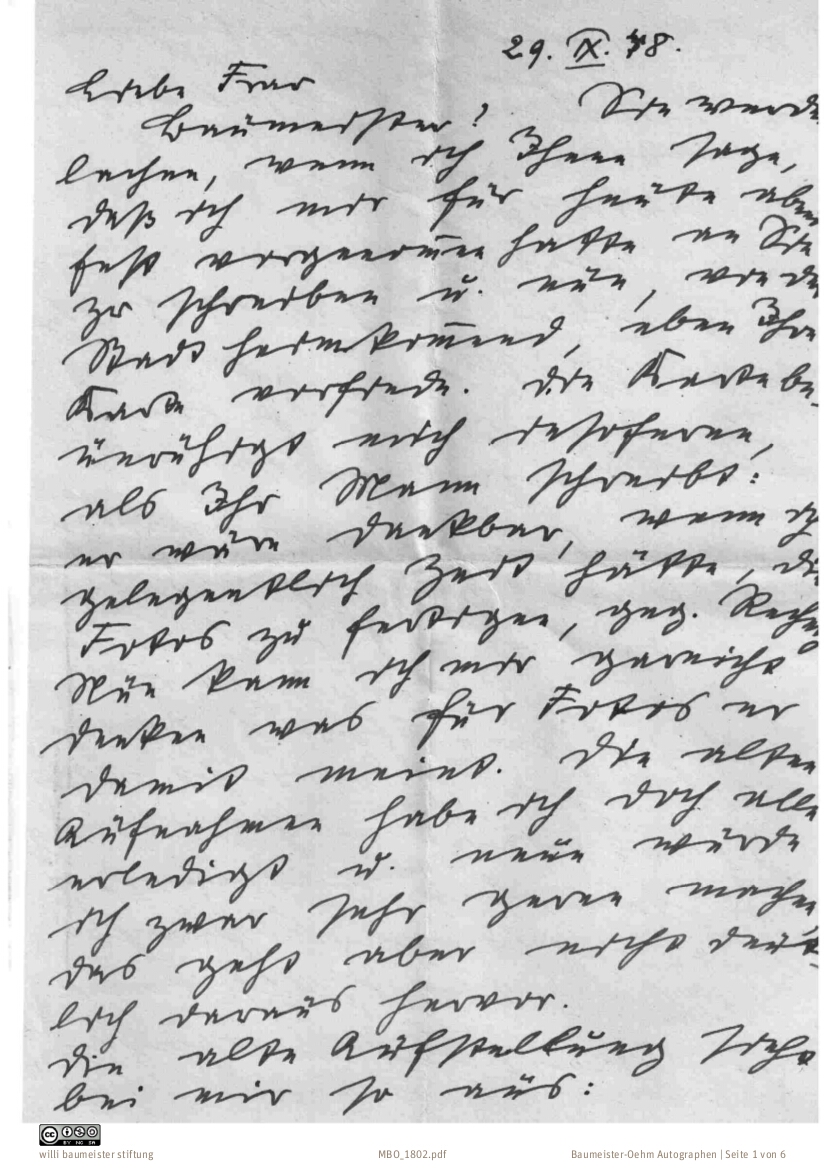 29. IX. 48.
Liebe Frau
Baumeister! Sie werde
lachen, wenn ich Ihnen sage,
daß ich mir für heute aben
fest vorgenom̅en hatte an Sie
zu schreiben u. nun, von de
Stadt heimkom̅end, eben Ihre
Karte vorfinde. Die Karte be-
unruhigt mich insofern,
als Ihr Mann schreibt:
er wäre dankbar, wenn ich
gelegentlich Zeit hätte, die
Fotos zu fertigen, geg. Rechn
Nun kann ich mir garnicht
denken was für Fotos er
damit meint. Die alten
Aufnahmen habe ich doch alle
erledigt u. neue würde
ich zwar sehr gerne machen
das geht aber nicht deut-
lich daraus hervor.
Die alte Aufstellung sieht
bei mir so aus:
willi baumeister stiftung MBO_1802.pdf Baumeister-Oehm Autographen | Seite 1 von 6